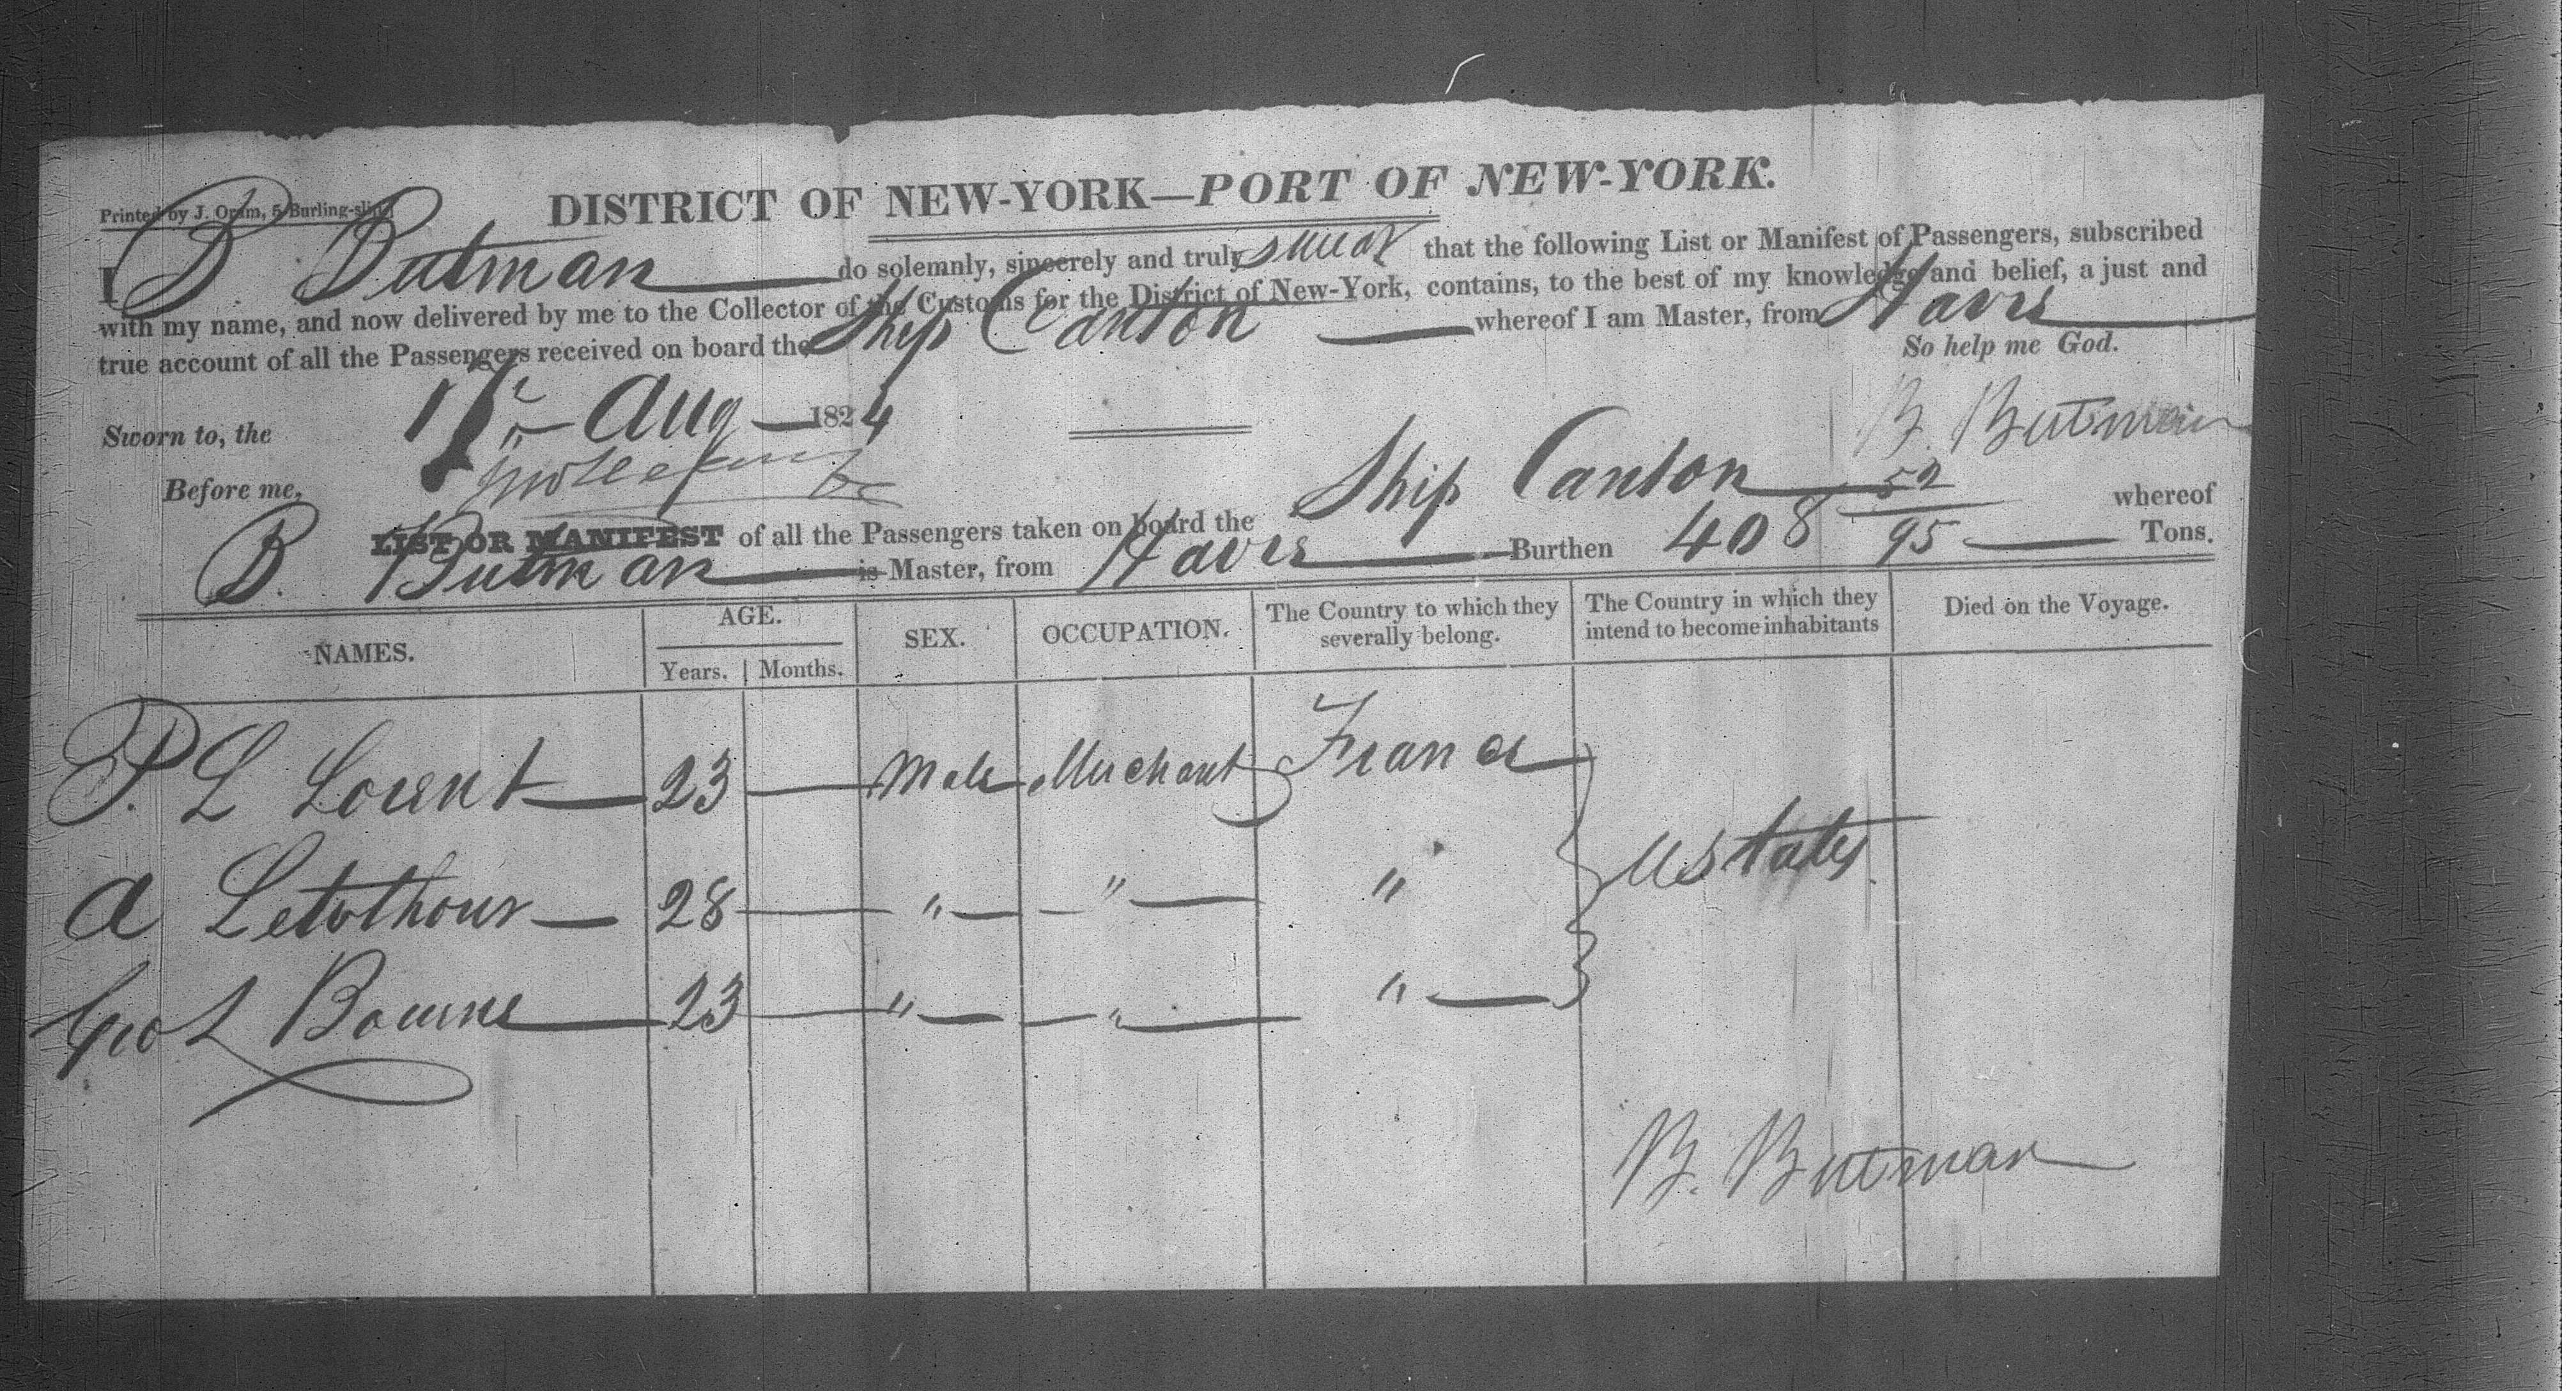 DISTRICT OF NEW-YORK—PORT OF NEW-YORK.
Printed by J. Oram, 5 Burling-slip
I B Butman do solemnly, sincerely and truly swear that the following List or Manifest of Passengers, subscribed
with my name, and now delivered by me to the Collector of the Customs for the District of New-York, contains, to the best of my knowledge and belief, a just and
true account of all the Passengers received on board the Ship Canton whereof I am Master, from Havre
So help me God.
Sworn to, the Aug 1824
B. Butman
Before me,
LIST OR MANIFEST of all the Passengers taken on board the Ship Canton whereof
B. Butman is Master, from Havre Burthen 408 52/95 Tons.
NAMES. AGE. SEX. OCCUPATION. The Country to which they severally belong. The Country in which they intend to become inhabitants Died on the Voyage.
Years. Months.
P. L Lorent 23 Male Merchant France
A 28 " " " U States
Geo L Bourne 23 " " "
B. Butman